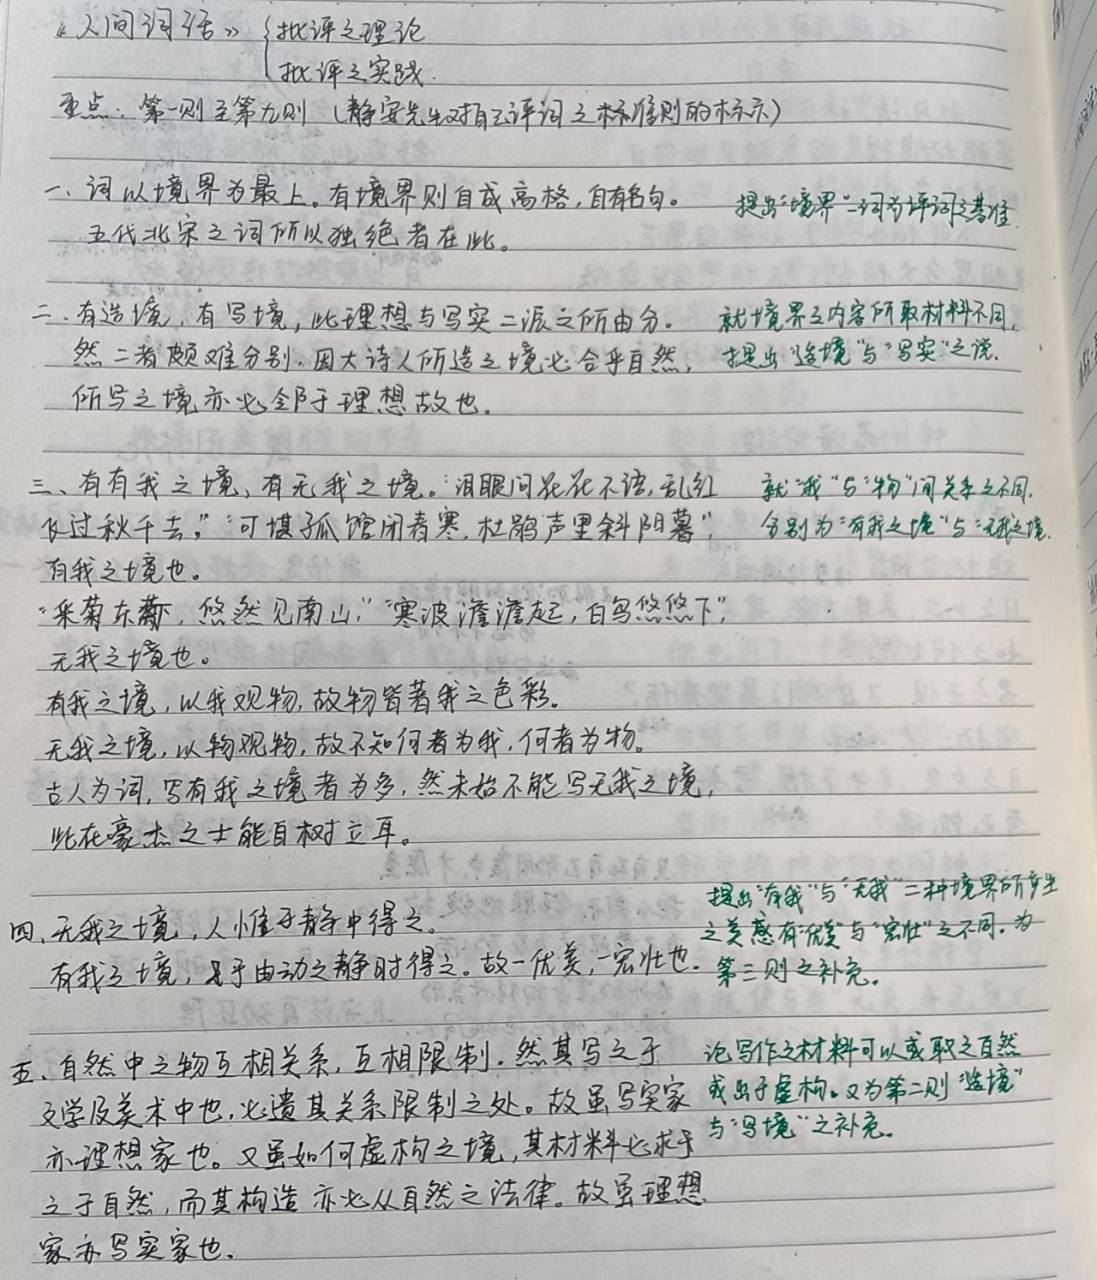 《人间词话》 批评之理论
批评之实践.
重点：第一则至第九则（静安先生对自己评词之标准则的标示）
一、词以境界为最上。有境界则自成高格，自有名句。 提出“境界”一词为评词之基准.
五代北宋之词所以独绝者在此。
二、有造境，有写境，此理想与写实二派之所由分. 就境界之内容所取材料不同,
然二者颇难分别.因大诗人所造之境必合乎自然, 提出“造境”与“写实”之说.
所写之境亦必邻于理想故也.
三、有有我之境，有无我之境。“泪眼问花花不语,乱红 就“我”与“物”间关系之不同.
飞过秋千去。”“可堪孤馆闭春寒,杜鹃声里斜阳暮”, 分别为“有我之境”与“无我之境.
有我之境也。
“采菊东篱下，悠然见南山”“寒波澹澹起，白鸟悠悠下”,
无我之境也。
有我之境，以我观物，故物皆著我之色彩。
无我之境，以物观物，故不知何者为我，何者为物。
古人为词，写有我之境者为多，然未始不能写无我之境，
此在豪杰之士能自树立耳。
提出“有我”与“无我”二种境界所产生
四、无我之境，人惟于静中得之。 之美感有“优美”与“宏壮”之不同，为
有我之境，于由动之静时得之。故一优美，一宏壮也. 第三则之补充。
五、自然中之物互相关系，互相限制.然其写之于 论写作之材料可以或取之自然
文学及美术中也，必遗其关系限制之处。故虽写实家 或出于虚构。又为第二则“造境”
亦理想家也。又虽如何虚构之境，其材料必求于 与“写境”之补充。
之于自然，而其构造亦必从自然之法律。故虽理想
家亦写实家也.